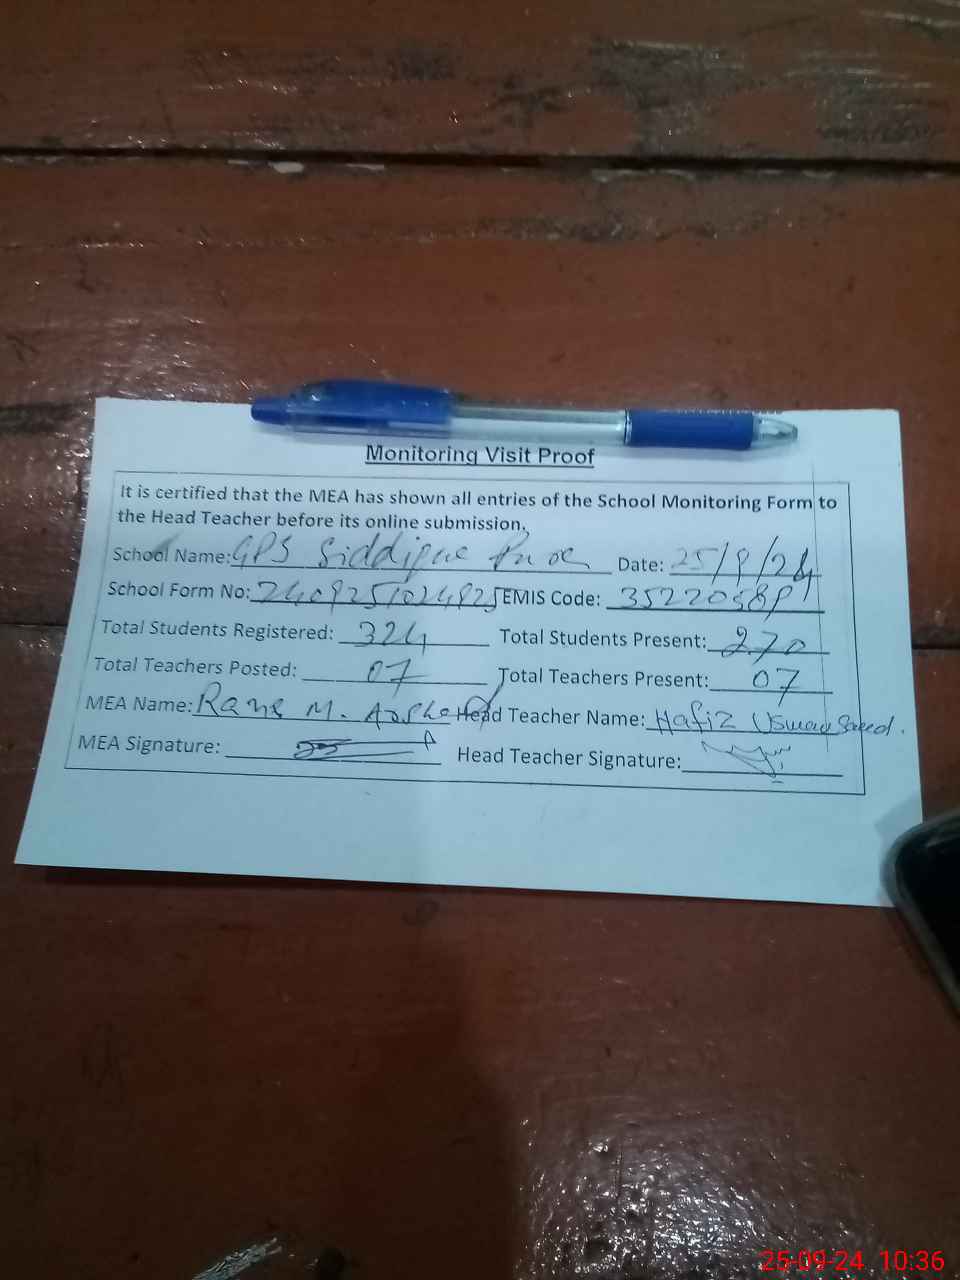 Monitoring Visit Proof
It is certified that the MEA has shown all entries of the School Monitoring Form to
the Head Teacher before its online submission.
School Name: GPS Siddique Pura Date: 25/9/24
School Form No: 2409251024925 EMIS Code: 35220589
Total Students Registered: 324 Total Students Present: 270
Total Teachers Posted: 07 Total Teachers Present: 07
MEA Name: Rana M. Head Teacher Name: Hafiz Usman Saeed.
MEA Signature: Head Teacher Signature:
25-09-24 10:36